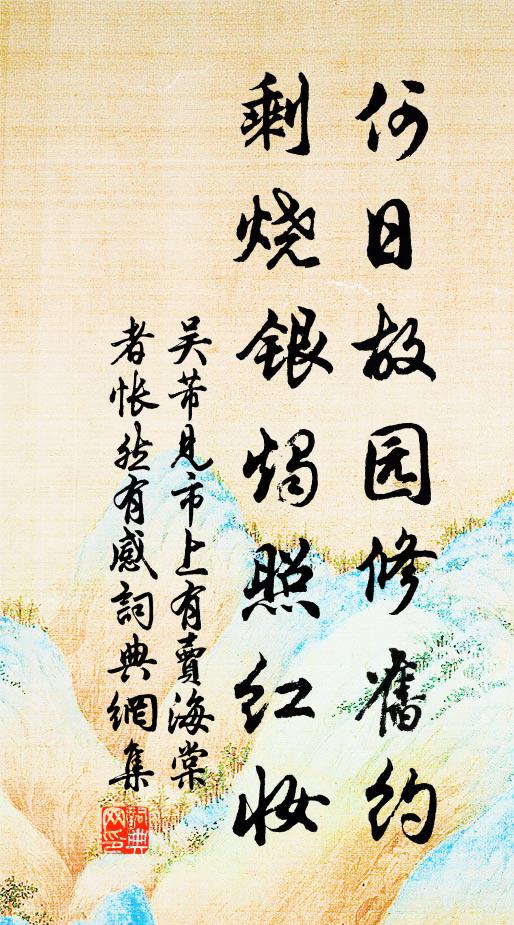 何日故园修舊约
剩烧银烛照红妆
吴芾見市上有賣海棠
者怅然有感詞典網集
詞典網印